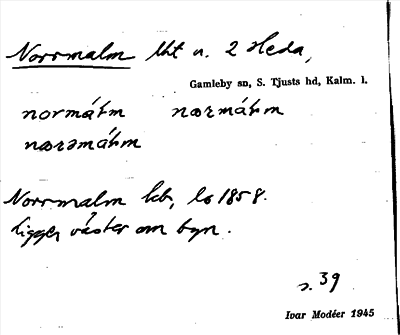 Norrmalm lht u. 2 Heda,
Gamleby sn, S. Tjusts hd, Kalm. l.
normáłm nærmáłm
nærəmáłm
Norrmalm kb, ls 1858.
ligger väster om byn.
s. 39
Ivar Modéer 1945